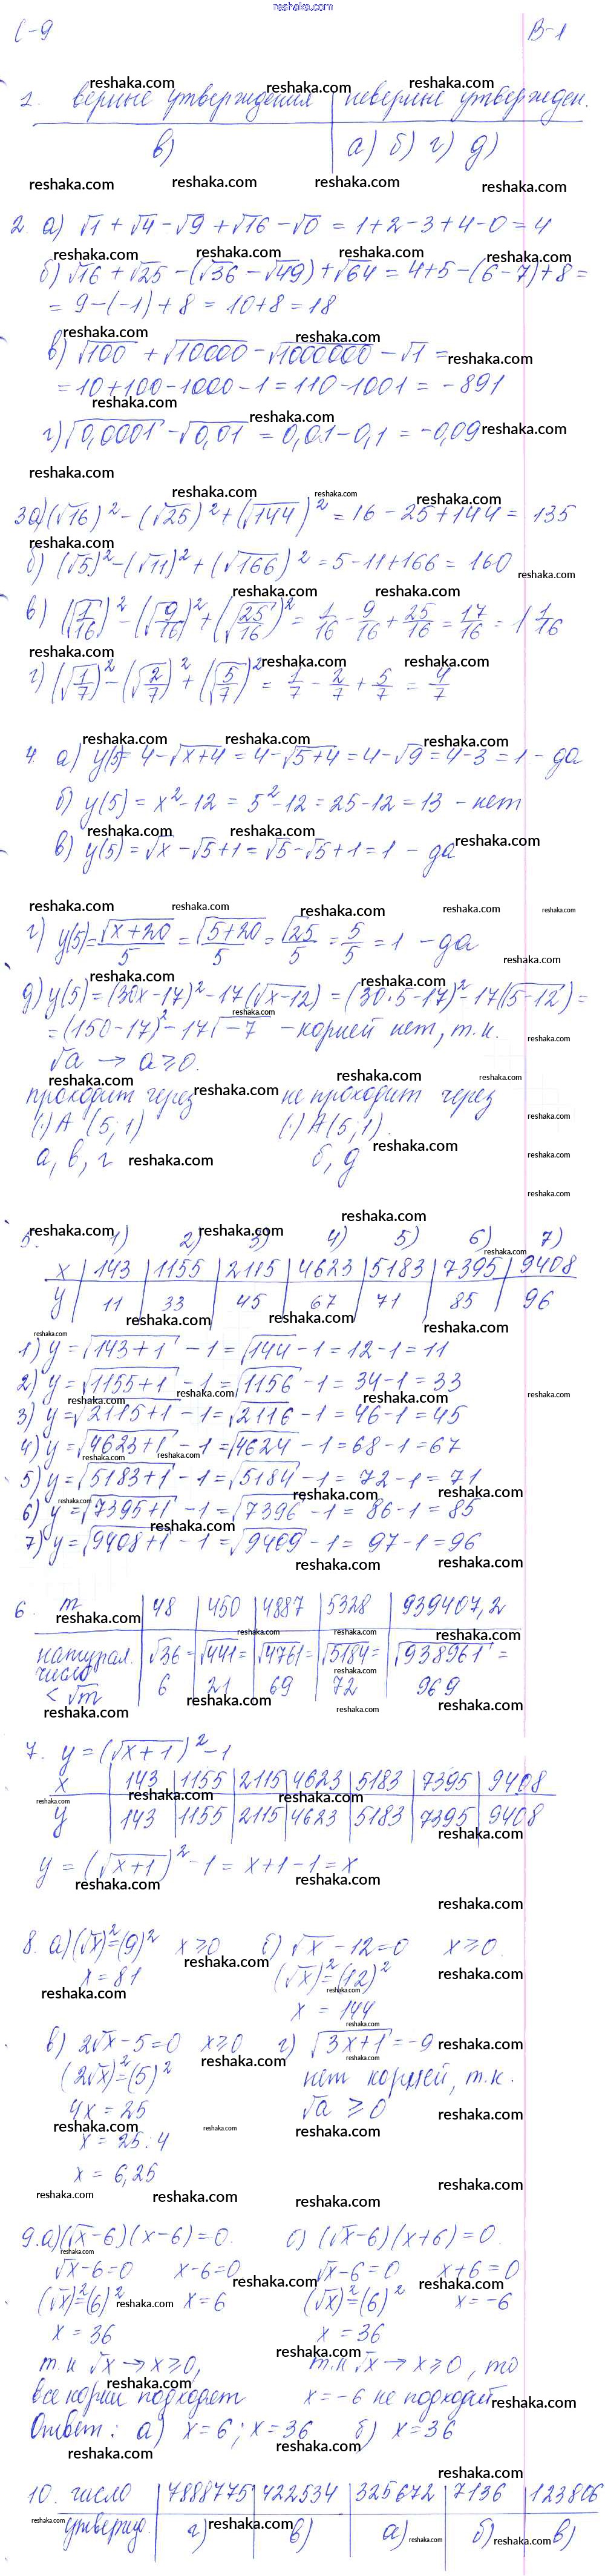 reshaka.com
С-9 В-1
1. верные утверждения | неверные утвержден.
в) | а) б) г) д)
2. а) √1 + √4 − √9 + √16 − √0 = 1+2−3+4−0 = 4
б) √16 + √25 − (√36 − √49) + √64 = 4+5−(6−7)+8 =
= 9−(−1)+8 = 10+8 = 18
в) √100 + √10000 − √1000000 − √1 =
= 10+100−1000−1 = 110−1001 = −891
г) √0,0001 − √0,01 = 0,01−0,1 = −0,09
3 а) (√16)² − (√25)² + (√144)² = 16 − 25 + 144 = 135
б) (√5)² − (√11)² + (√166)² = 5−11+166 = 160
в) (√1/16)² − (√9/16)² + (√25/16)² = 1/16 − 9/16 + 25/16 = 17/16 = 1 1/16
г) (√1/7)² − (√2/7)² + (√5/7)² = 1/7 − 2/7 + 5/7 = 4/7
4. а) y(5) = 4 − √x+4 = 4−√5+4 = 4−√9 = 4−3 = 1 − да
б) y(5) = x² − 12 = 5²−12 = 25−12 = 13 − нет
в) y(5) = √x − √5 + 1 = √5 − √5 + 1 = 1 − да
г) y(5) = √x+20/5 = √5+20/5 = √25/5 = 5/5 = 1 − да
д) y(5) = (30x−17)² − 17(√x−12) = (30·5−17)² − 17(√5−12) =
= (150−17)² − 17√−7 − корней нет, т.к.
√a → a ⩾ 0.
проходит через не проходит через
(·) А (5; 1) (·) А (5; 1)
а, в, г б, д
5. 1) 2) 3) 4) 5) 6) 7)
x | 143 | 1155 | 2115 | 4623 | 5183 | 7395 | 9408
y | 11 | 33 | 45 | 67 | 71 | 85 | 96
1) y = √143+1 − 1 = √144 − 1 = 12−1 = 11
2) y = √1155+1 − 1 = √1156 − 1 = 34−1 = 33
3) y = √2115+1 − 1 = √2116 − 1 = 46−1 = 45
4) y = √4623+1 − 1 = √4624 − 1 = 68−1 = 67
5) y = √5183+1 − 1 = √5184 − 1 = 72−1 = 71
6) y = √7395+1 − 1 = √7396 − 1 = 86−1 = 85
7) y = √9408+1 − 1 = √9409 − 1 = 97−1 = 96
6. m | 48 | 450 | 4887 | 5328 | 939407,2
натурал. | √36 = | √441 = | √4761 = | √5184 = | √938961 =
число
< √m | 6 | 21 | 69 | 72 | 969
7. y = (√x+1)² − 1
x | 143 | 1155 | 2115 | 4623 | 5183 | 7395 | 9408
y | 143 | 1155 | 2115 | 4623 | 5183 | 7395 | 9408
y = (√x+1)² − 1 = x+1−1 = x
8. а) (√x)² = (9)² x ⩾ 0 б) √x − 12 = 0 x ⩾ 0
x = 81 (√x)² = (12)²
x = 144
в) 2√x − 5 = 0 x ⩾ 0 г) √3x+1 = −9
(2√x)² = (5)² нет корней, т.к.
4x = 25 √a ⩾ 0
x = 25 : 4
x = 6,25
9. а) (√x − 6)(x − 6) = 0. б) (√x − 6)(x + 6) = 0
√x − 6 = 0 x − 6 = 0 √x − 6 = 0 x + 6 = 0
(√x)² = (6)² x = 6 (√x)² = (6)² x = −6
x = 36 x = 36
т.к √x → x ⩾ 0, т.к √x → x ⩾ 0, то
все корни подходят x = −6 не подходит
Ответ: а) x = 6; x = 36 б) x = 36
10. число | 7888775 | 422534 | 325672 | 7136 | 123806
утвержд. | г) | в) | а) | б) | в)